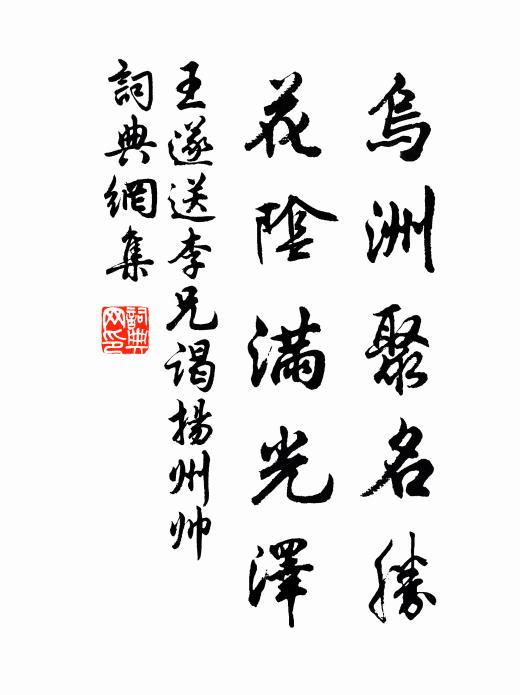 烏洲聚名勝
花陰滿光澤
王遂送李兄謁揚州帅
詞典網集
詞典网印